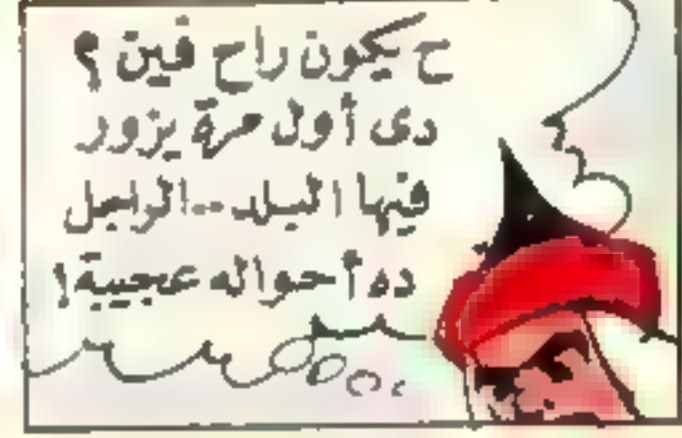 ح يكون راح فين ؟
دى أول مرة يزور
فيها البلد .. الراجل
ده أحواله عجيبة !